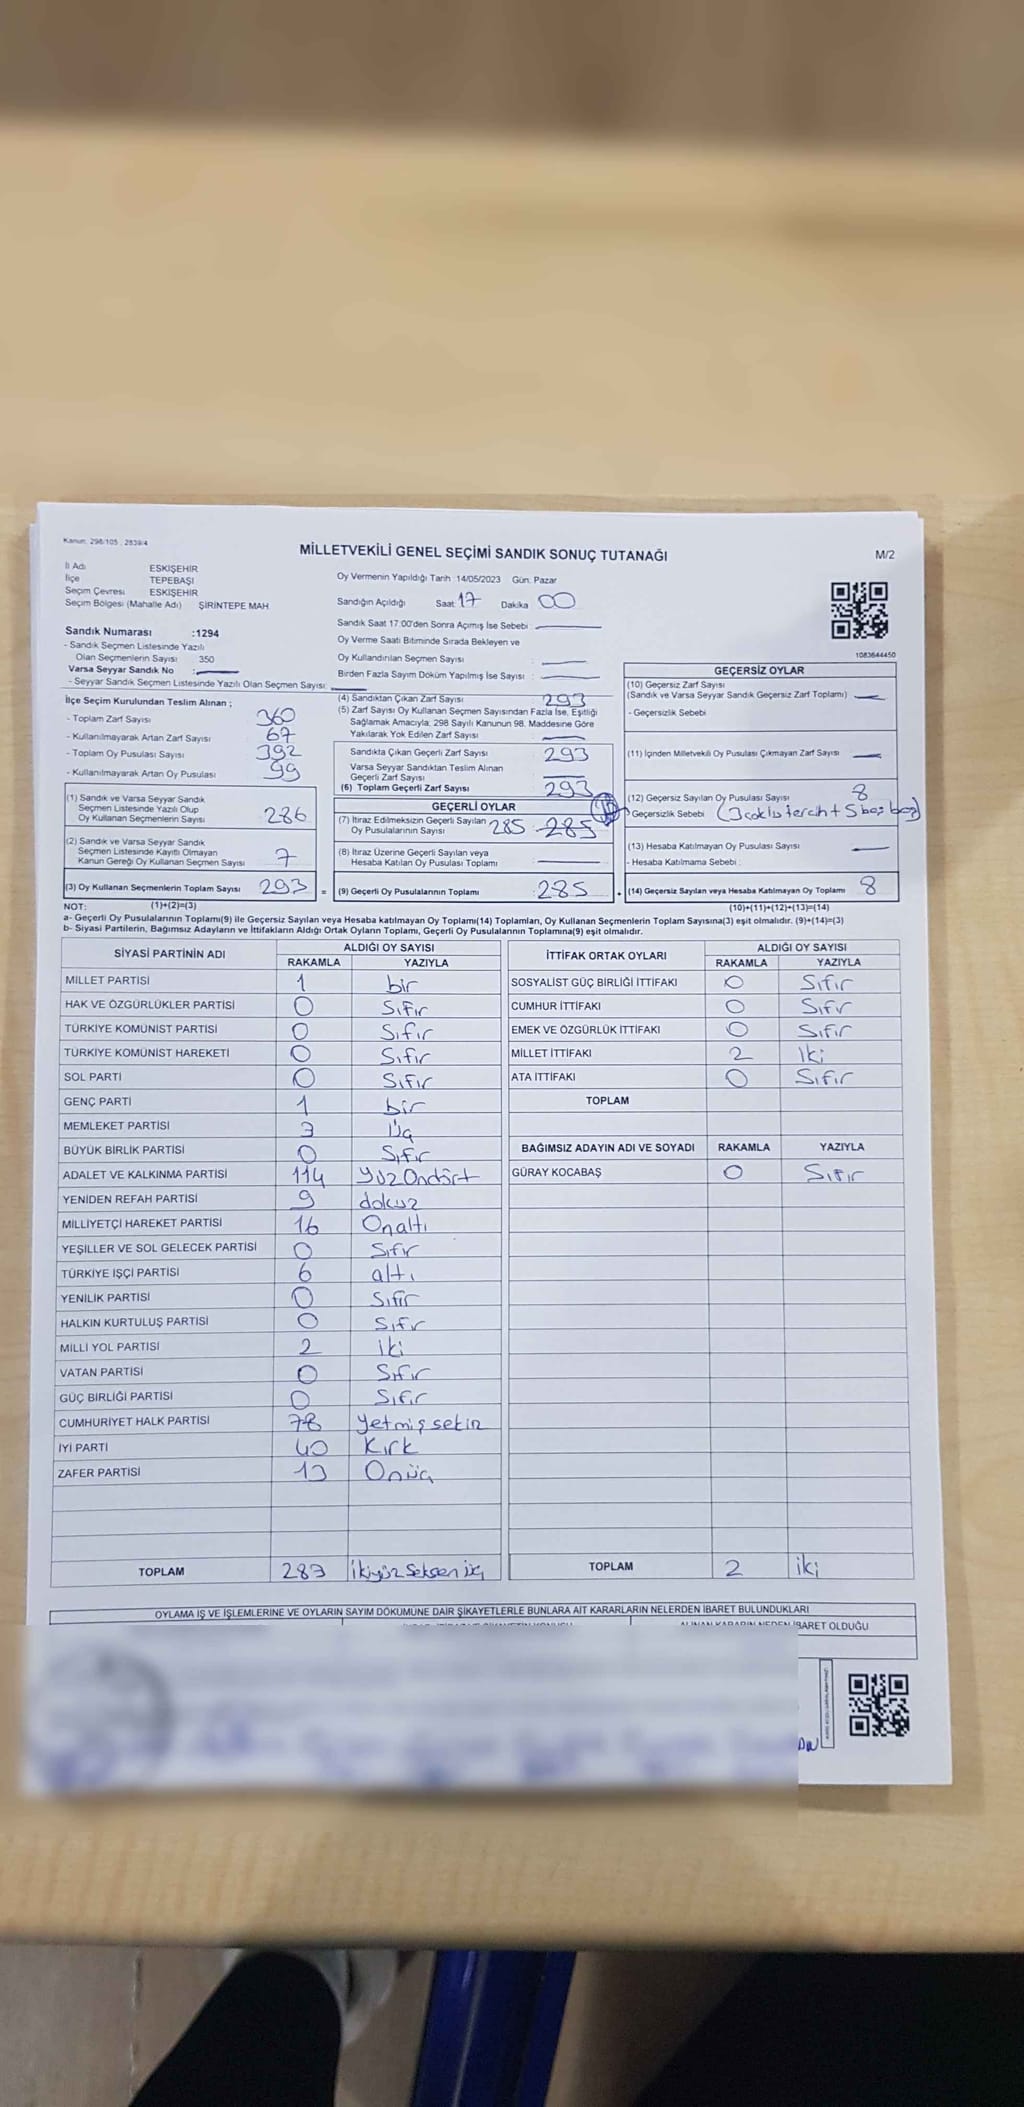 Kanun: 298/105 , 2839/4
MİLLETVEKİLİ GENEL SEÇİMİ SANDIK SONUÇ TUTANAĞI
M/2
İl Adı ESKİŞEHİR
İlçe TEPEBAŞI
Seçim Çevresi ESKİŞEHİR
Seçim Bölgesi (Mahalle Adı) ŞİRİNTEPE MAH
Oy Vermenin Yapıldığı Tarih 14/05/2023 Gün: Pazar
Sandığın Açıldığı Saat 17 Dakika 00
Sandık Saat 17:00'den Sonra Açımış İse Sebebi
Oy Verme Saati Bitiminde Sırada Bekleyen ve
Oy Kullandırılan Seçmen Sayısı :
Birden Fazla Sayım Döküm Yapılmış İse Sayısı :
1083644450
Sandık Numarası :1294
- Sandık Seçmen Listesinde Yazılı
Olan Seçmenlerin Sayısı 350
Varsa Seyyar Sandık No :
- Seyyar Sandık Seçmen Listesinde Yazılı Olan Seçmen Sayısı:
İlçe Seçim Kurulundan Teslim Alınan ;
- Toplam Zarf Sayısı 360
- Kullanılmayarak Artan Zarf Sayısı 67
- Toplam Oy Pusulası Sayısı 392
- Kullanılmayarak Artan Oy Pusulası 99
(1) Sandık ve Varsa Seyyar Sandık
Seçmen Listesinde Yazılı Olup
Oy Kullanan Seçmenlerin Sayısı 286
(2) Sandık ve Varsa Seyyar Sandık
Seçmen Listesinde Kayıtlı Olmayan
Kanun Gereği Oy Kullanan Seçmen Sayısı 7
(3) Oy Kullanan Seçmenlerin Toplam Sayısı 293 =
(1)+(2)=(3)
(4) Sandıktan Çıkan Zarf Sayısı 293
(5) Zarf Sayısı Oy Kullanan Seçmen Sayısından Fazla İse, Eşitliği
Sağlamak Amacıyla, 298 Sayılı Kanunun 98. Maddesine Göre
Yakılarak Yok Edilen Zarf Sayısı
Sandıkta Çıkan Geçerli Zarf Sayısı 293
Varsa Seyyar Sandıktan Teslim Alınan
Geçerli Zarf Sayısı
(6) Toplam Geçerli Zarf Sayısı 293
GEÇERLİ OYLAR
(7) İtiraz Edilmeksizin Geçerli Sayılan
Oy Pusulalarının Sayısı 285 285
(8) İtiraz Üzerine Geçerli Sayılan veya
Hesaba Katılan Oy Pusulası Toplamı
(9) Geçerli Oy Pusulalarının Toplamı 285 +
GEÇERSİZ OYLAR
(10) Geçersiz Zarf Sayısı
(Sandık ve Varsa Seyyar Sandık Geçersiz Zarf Toplamı)
- Geçersizlik Sebebi
(11) İçinden Milletvekili Oy Pusulası Çıkmayan Zarf Sayısı
(12) Geçersiz Sayılan Oy Pusulası Sayısı 8
Geçersizlik Sebebi (3 çoklu tercih + 5 boş boş)
(13) Hesaba Katılmayan Oy Pusulası Sayısı
- Hesaba Katılmama Sebebi :
(14) Geçersiz Sayılan veya Hesaba Katılmayan Oy Toplamı 8
(10)+(11)+(12)+(13)=(14)
NOT:
a- Geçerli Oy Pusulalarının Toplamı(9) ile Geçersiz Sayılan veya Hesaba katılmayan Oy Toplamı(14) Toplamları, Oy Kullanan Seçmenlerin Toplam Sayısına(3) eşit olmalıdır. (9)+(14)=(3)
b- Siyasi Partilerin, Bağımsız Adayların ve İttifakların Aldığı Ortak Oyların Toplamı, Geçerli Oy Pusulalarının Toplamına(9) eşit olmalıdır.
SİYASİ PARTİNİN ADI ALDIĞI OY SAYISI
RAKAMLA YAZIYLA
MİLLET PARTİSİ 1 bir
HAK VE ÖZGÜRLÜKLER PARTİSİ 0 Sıfır
TÜRKİYE KOMÜNİST PARTİSİ 0 Sıfır
TÜRKİYE KOMÜNİST HAREKETİ 0 Sıfır
SOL PARTİ 0 Sıfır
GENÇ PARTİ 1 bir
MEMLEKET PARTİSİ 3 Üç
BÜYÜK BİRLİK PARTİSİ 0 Sıfır
ADALET VE KALKINMA PARTİSİ 114 YüzOndört
YENİDEN REFAH PARTİSİ 9 dokuz
MİLLİYETÇİ HAREKET PARTİSİ 16 Onaltı
YEŞİLLER VE SOL GELECEK PARTİSİ 0 Sıfır
TÜRKİYE İŞÇİ PARTİSİ 6 altı
YENİLİK PARTİSİ 0 Sıfır
HALKIN KURTULUŞ PARTİSİ 0 Sıfır
MİLLİ YOL PARTİSİ 2 iki
VATAN PARTİSİ 0 Sıfır
GÜÇ BİRLİĞİ PARTİSİ 0 Sıfır
CUMHURİYET HALK PARTİSİ 78 Yetmişsekiz
İYİ PARTİ 40 Kırk
ZAFER PARTİSİ 13 Onüç
TOPLAM 283 ikiyüzSeksenüç
İTTİFAK ORTAK OYLARI ALDIĞI OY SAYISI
RAKAMLA YAZIYLA
SOSYALİST GÜÇ BİRLİĞİ İTTİFAKI 0 Sıfır
CUMHUR İTTİFAKI 0 Sıfır
EMEK VE ÖZGÜRLÜK İTTİFAKI 0 Sıfır
MİLLET İTTİFAKI 2 iki
ATA İTTİFAKI 0 Sıfır
TOPLAM
BAĞIMSIZ ADAYIN ADI VE SOYADI RAKAMLA YAZIYLA
GÜRAY KOCABAŞ 0 Sıfır
TOPLAM 2 iki
OYLAMA İŞ VE İŞLEMLERİNE VE OYLARIN SAYIM DÖKÜMÜNE DAİR ŞİKAYETLERLE BUNLARA AİT KARARLARIN NELERDEN İBARET BULUNDUKLARI
ALINAN KARARIN NEDEN İBARET OLDUĞU